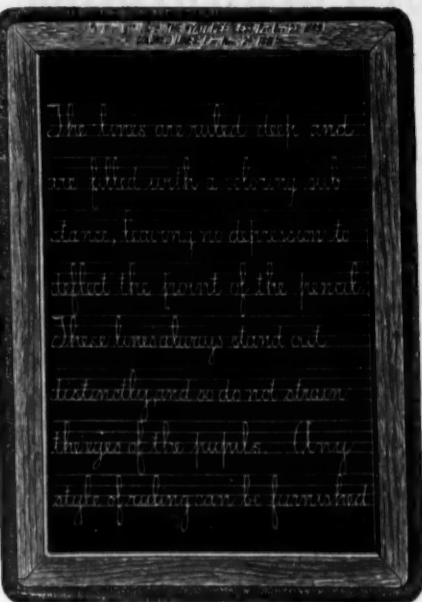 The lines are ruled deep and
are filled with a coloring sub
stance, leaving no depression to
deflect the point of the pencil.
These lines always stand out
distinctly, and so do not strain
the eyes of the pupils. Any
style of ruling can be furnished